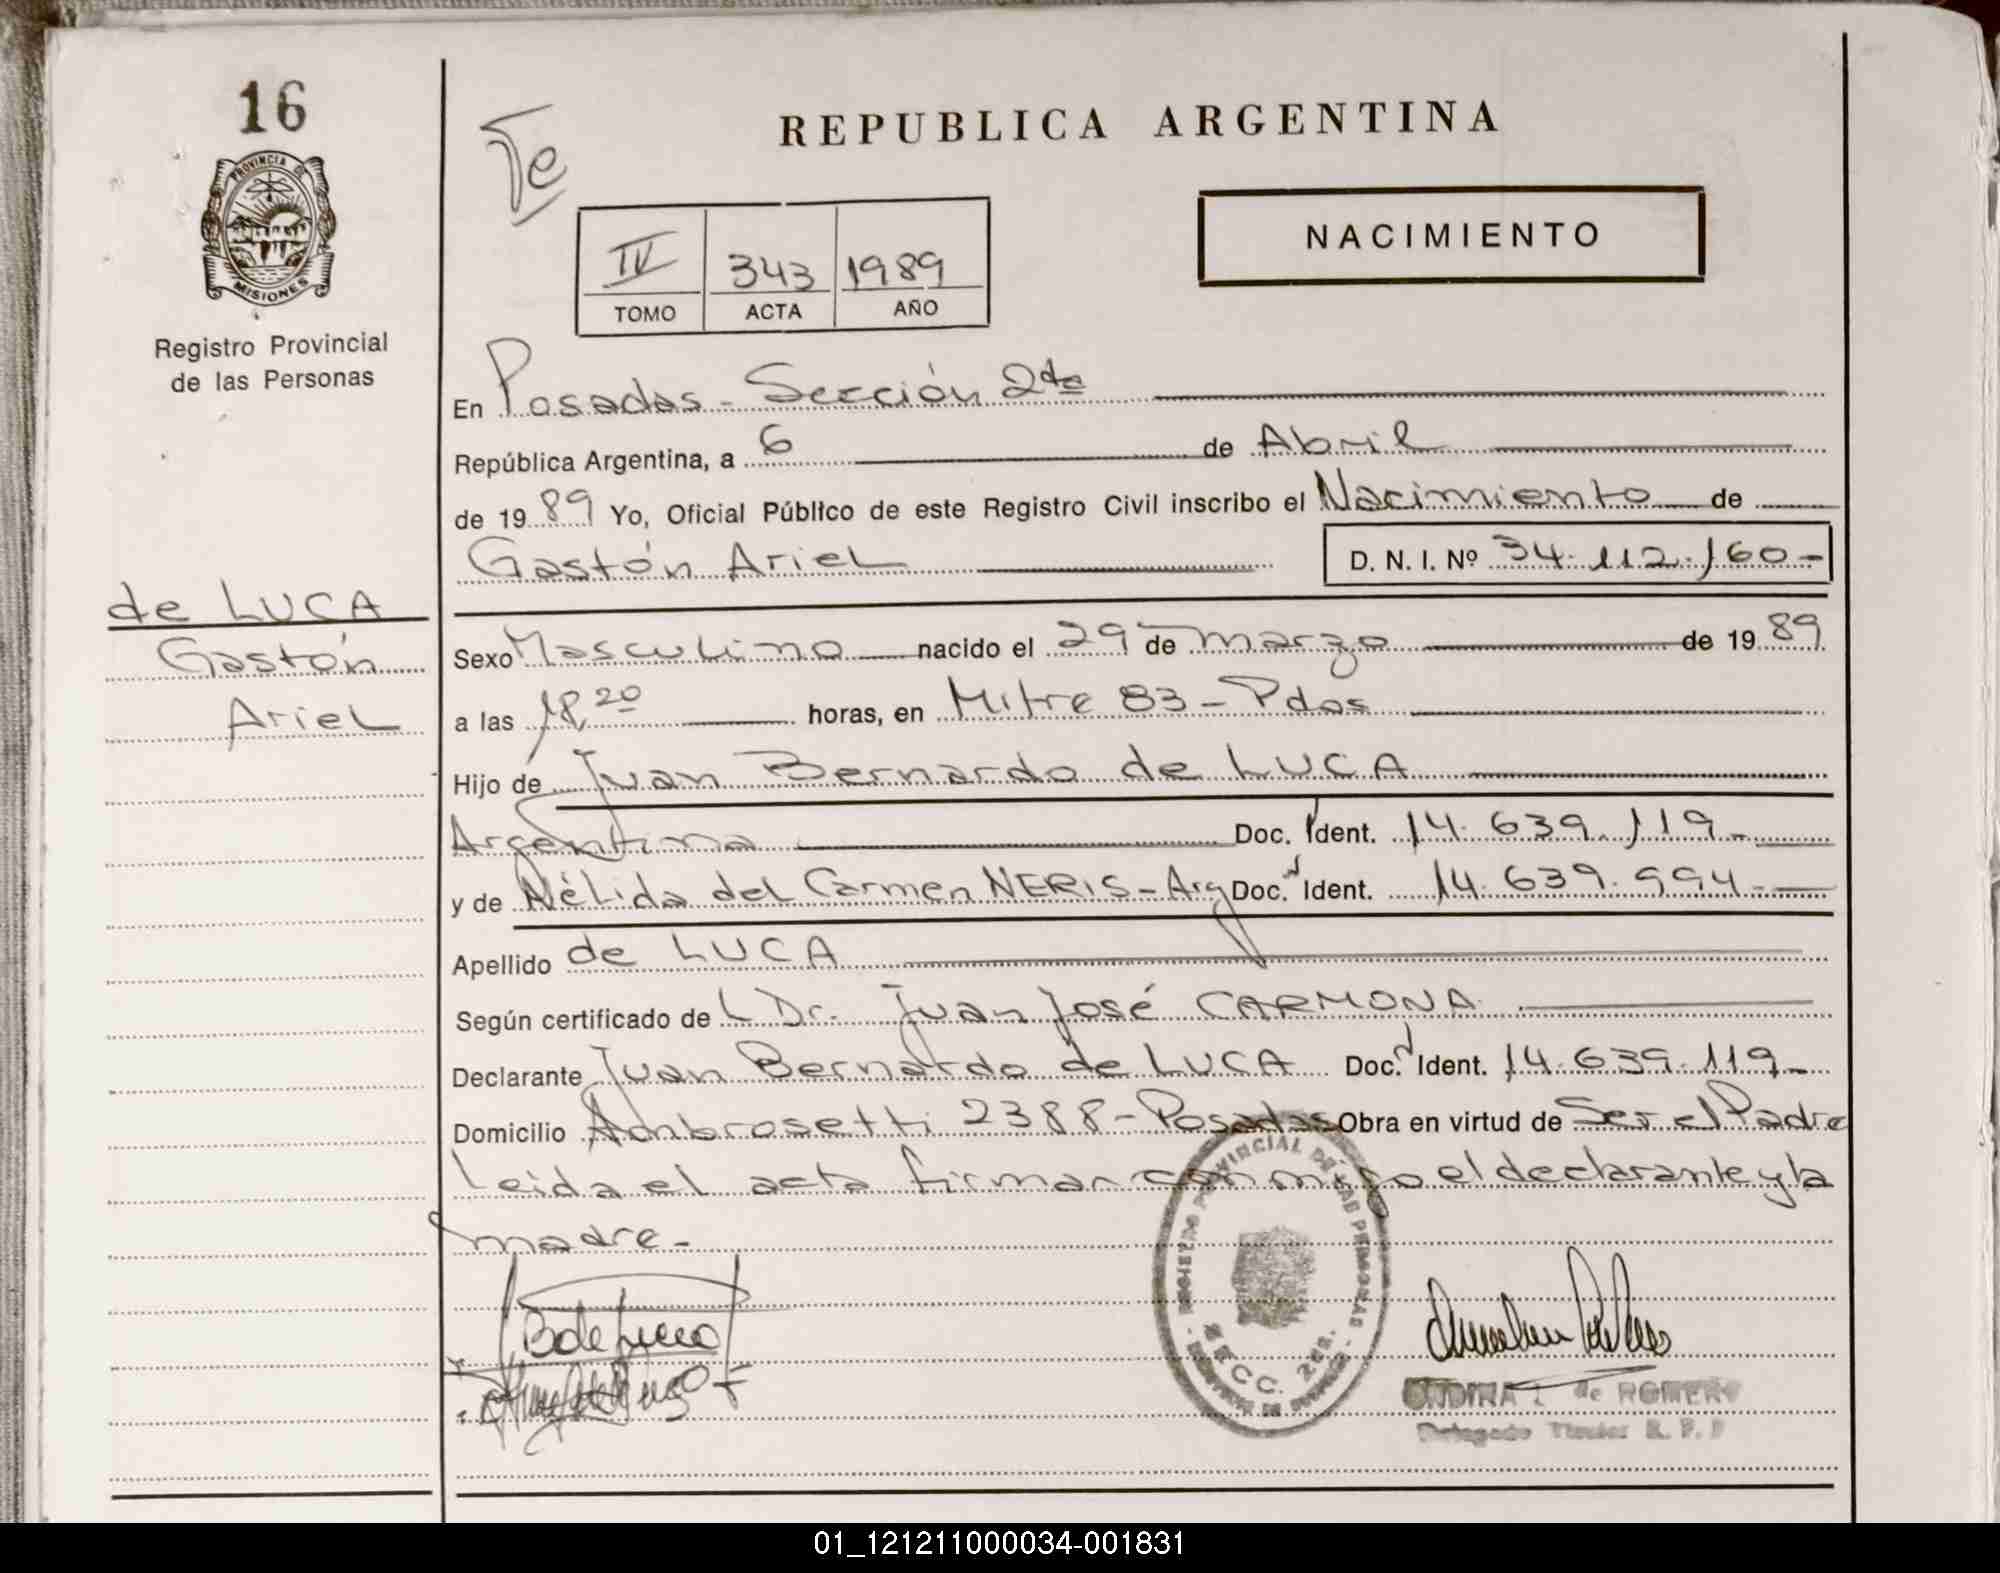 16
PROVINCIA DE
MISIONES
Registro Provincial
de las Personas
de LUCA
Gastón
Ariel
Te
REPUBLICA ARGENTINA
NACIMIENTO
IV 343 1989
TOMO ACTA AÑO
En Posadas - Sección 2da
República Argentina, a 6 de Abril
de 1989 Yo, Oficial Público de este Registro Civil inscribo el Nacimiento de
Gastón Ariel D. N. I. Nº 34.112.160-
Sexo Masculino nacido el 29 de marzo de 1989
a las 18,20 horas, en Mitre 83 - Pdas
Hijo de Juan Bernardo de LUCA
Argentina Doc. Ident. 14.639.119-
y de Nélida del Carmen NERIS - Arg Doc. Ident. 14.639.994-
Apellido de LUCA
Según certificado de L Dr. Juan José CARMONA
Declarante Juan Bernardo de LUCA Doc. Ident. 14.639.119-
Domicilio Ambrosetti 2388 - Posadas Obra en virtud de Ser el Padre
Leida el acta firman conmigo el declarante y la
madre -
REGISTRO PROVINCIAL DE LAS PERSONAS
SECC. 2da.
B de Luca
de ROMERO
Delegado Titular R. P. P
01_121211000034-001831